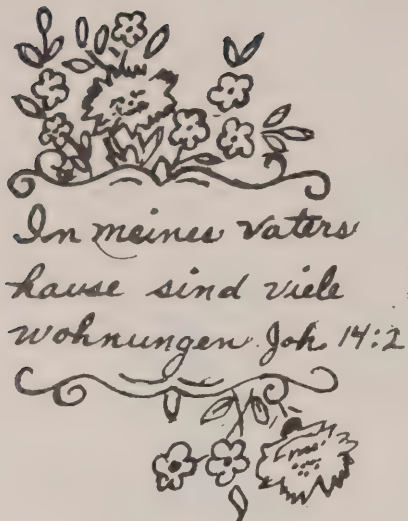 In meines Vaters
hause sind viele
Wohnungen. Joh. 14:2